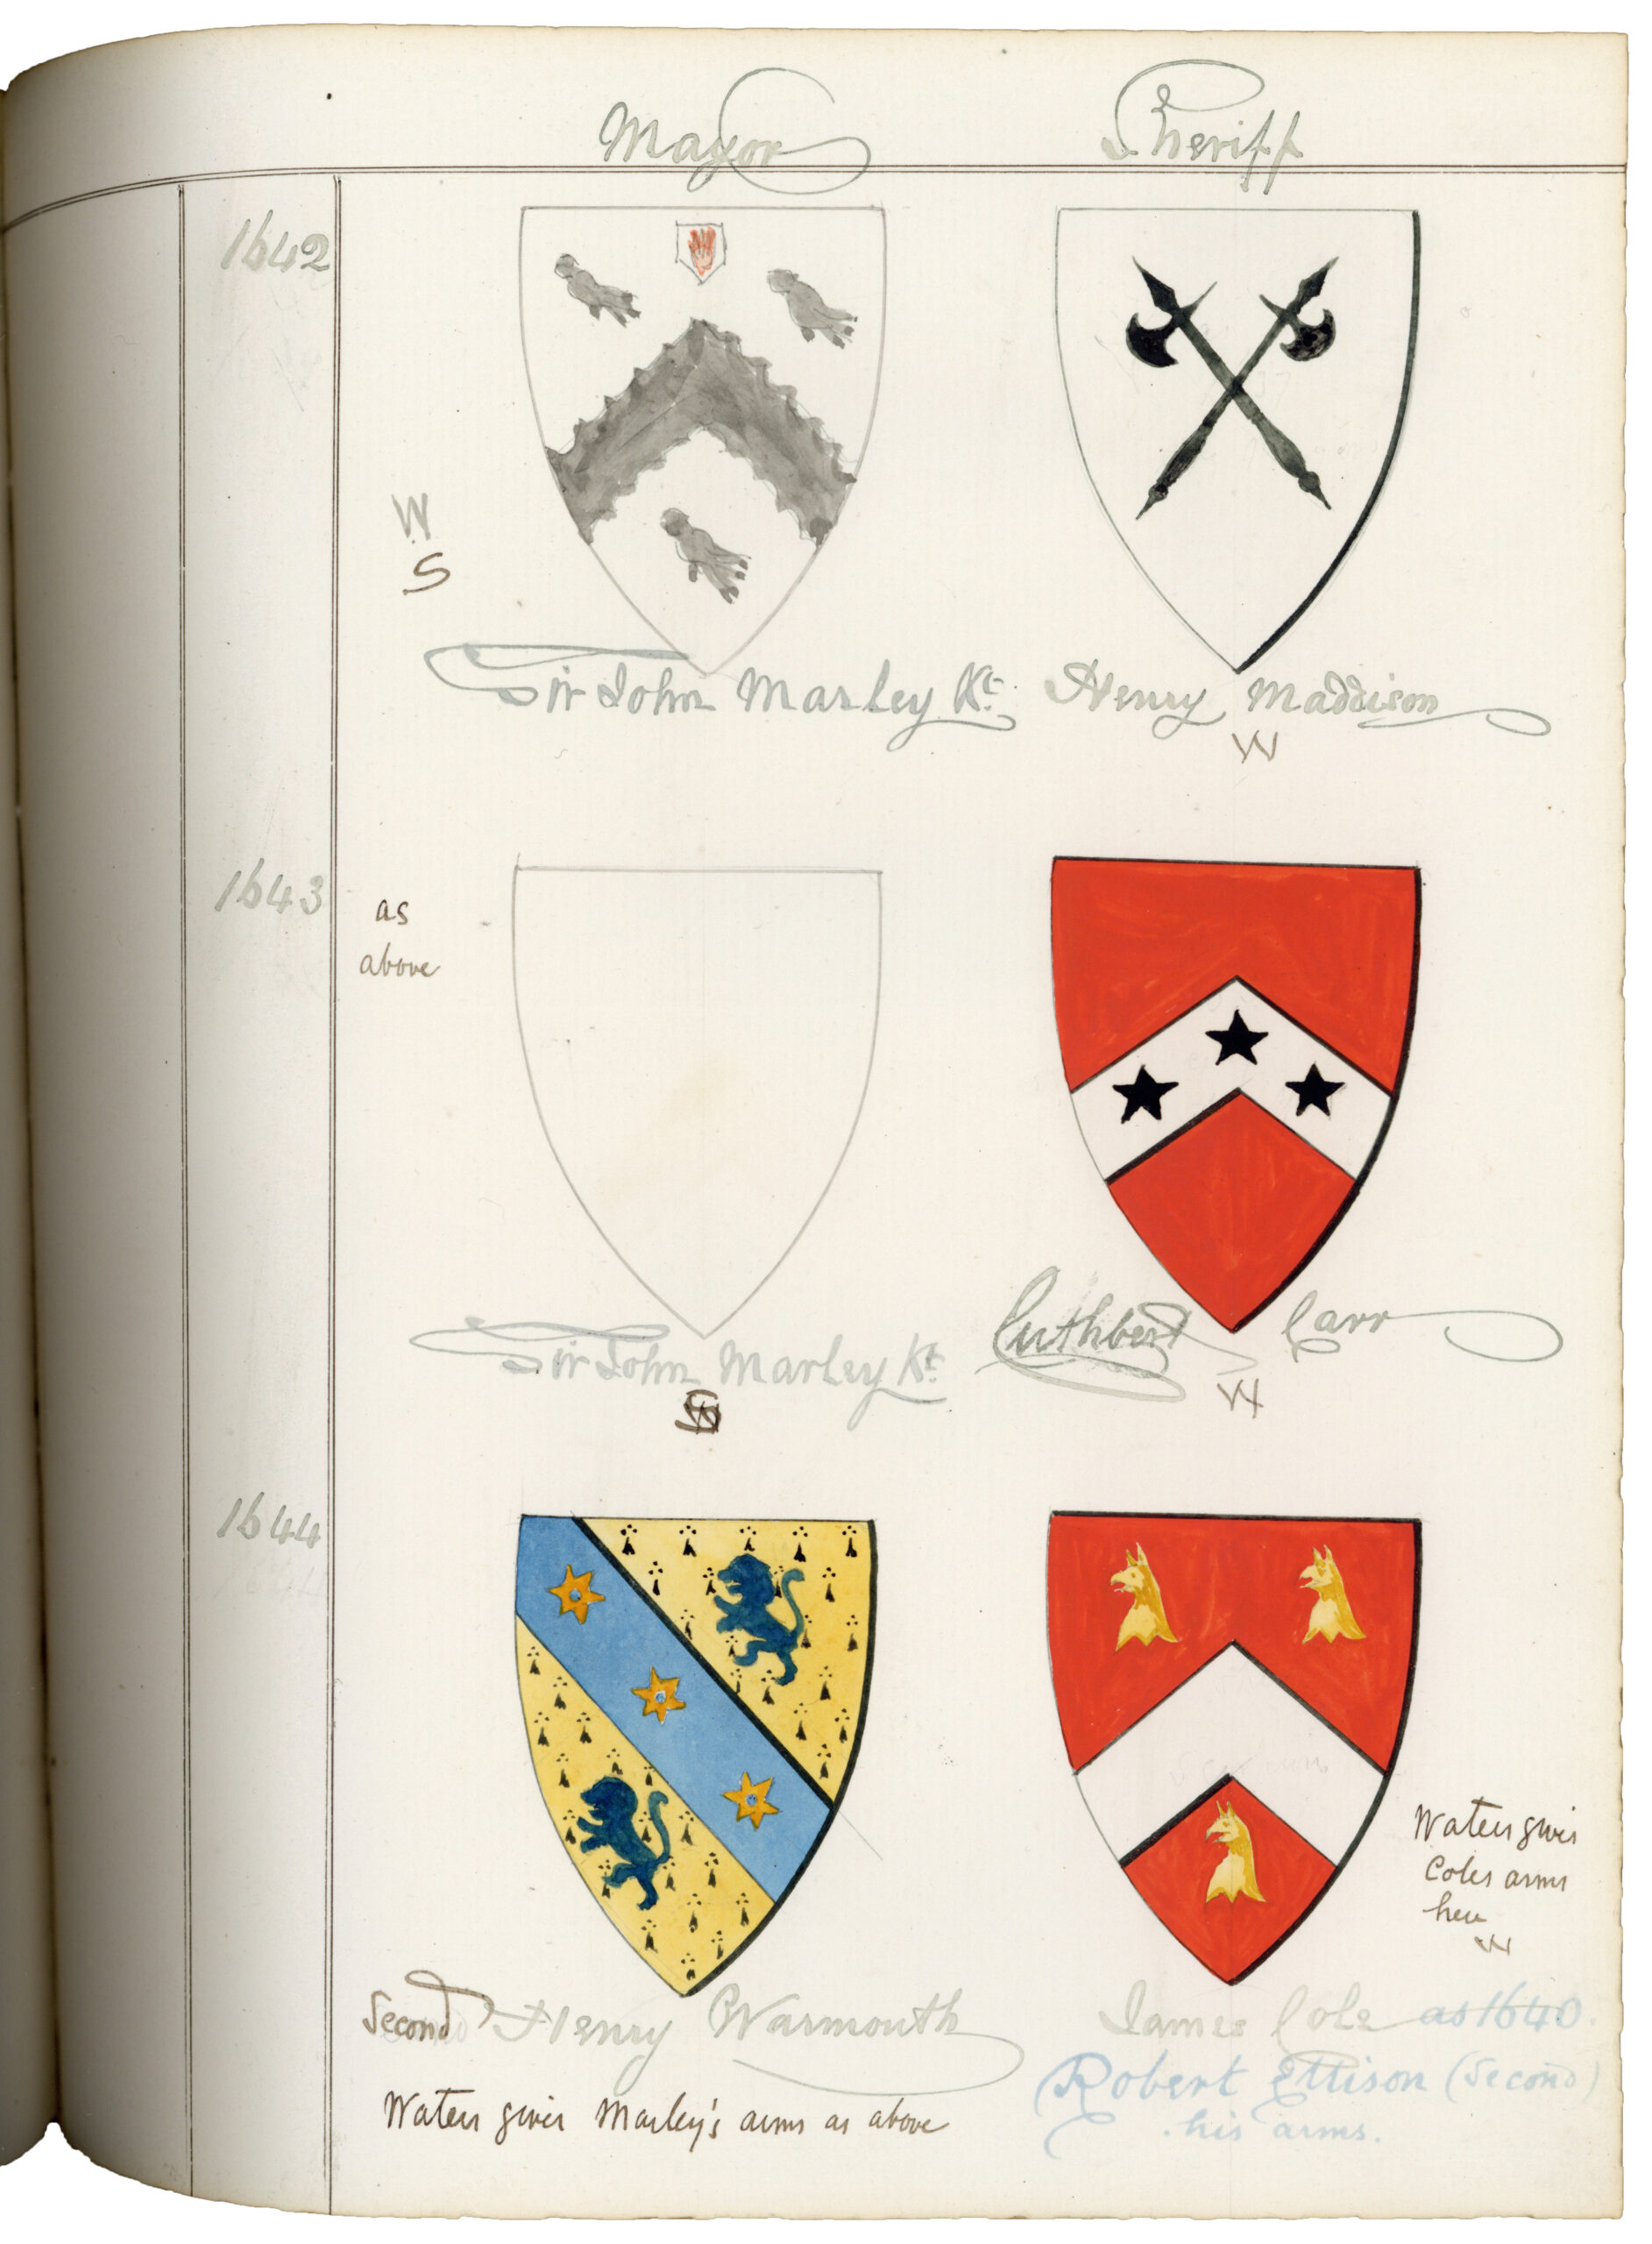 Mayor Sheriff
1642
W
S
Sir John Marley Kt. Henry Maddison
W
1643
as
above
Sir John Marley Kt.
Cuthbert Carr
W
1644
Waters gives
Coles arms
here
W
Second Henry Warmouth
James Cole as 1640.
Waters gives Marley's arms as above
Robert Ellison (Second)
his arms.